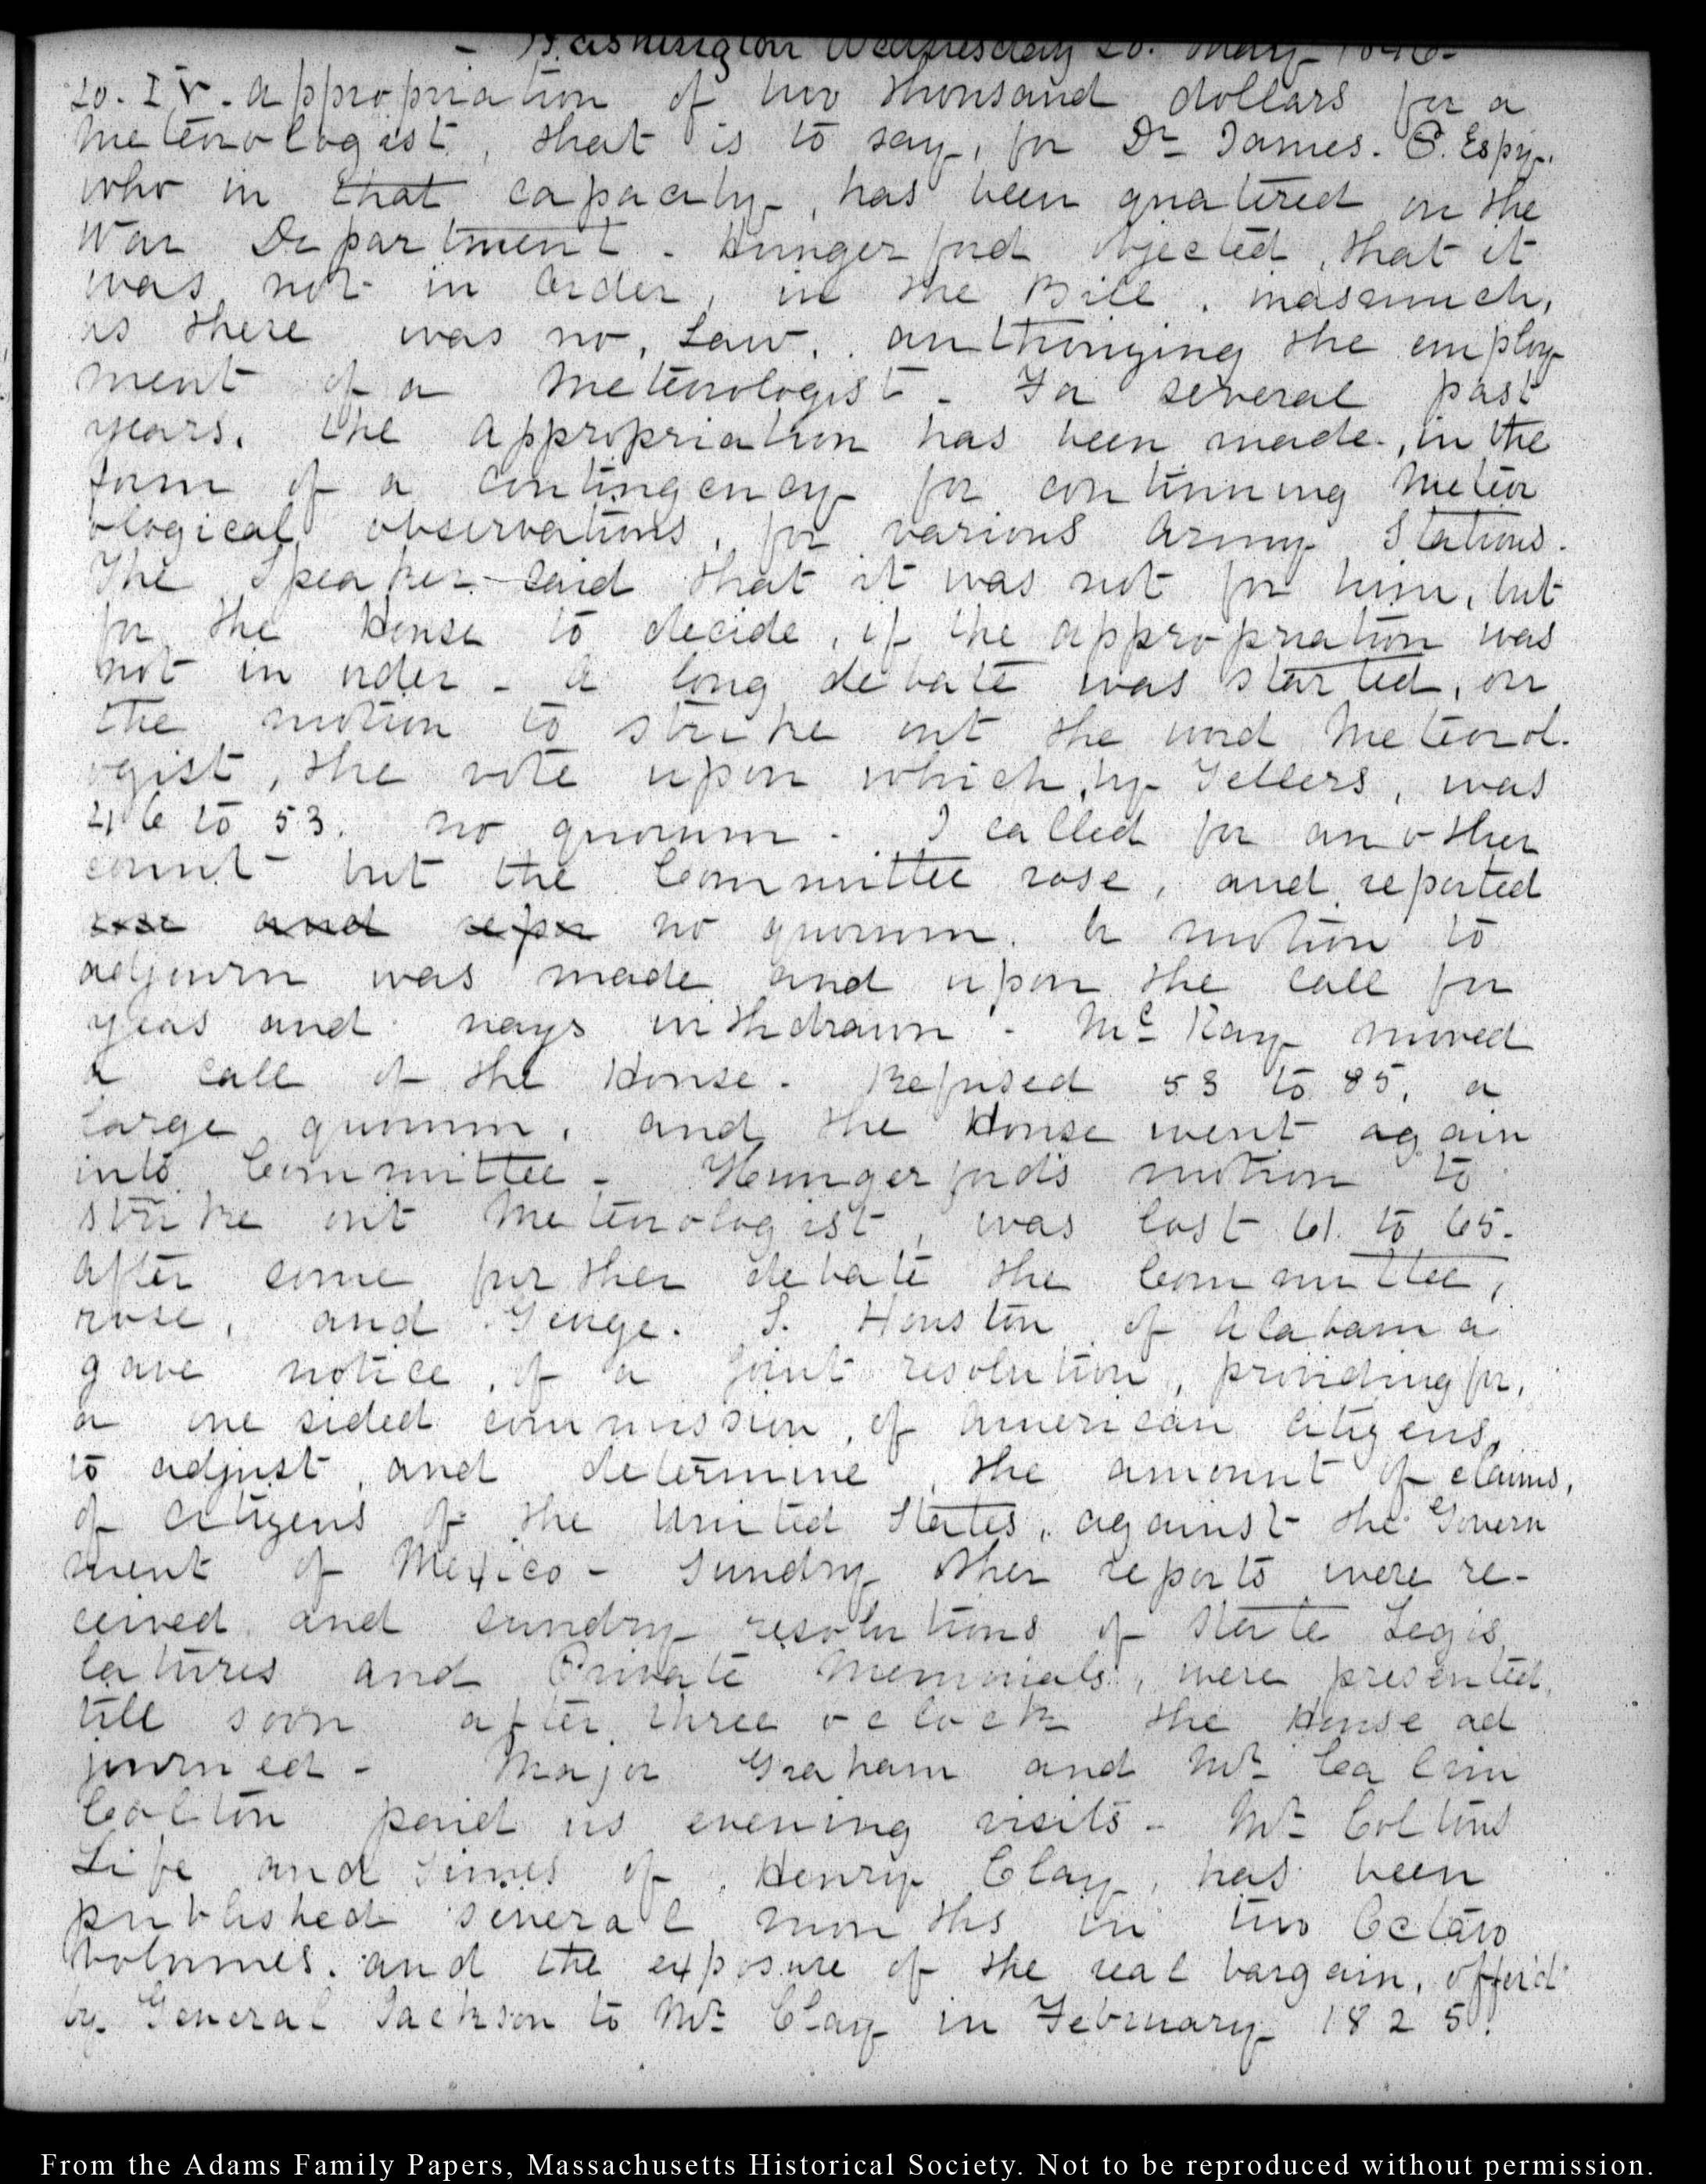 - Washington Wednesday 20. May 1846-
20. IV. appropriation of two thousand dollars for a
meteorologist, that is to say, for Dr. James. P. Espy.
who in that capacity, has been quatered on the
War Department - Hungerford objected, that it
was not in order, in the Bill, inasmuch,
as there was no, Law, authorizing the employ
ment of a meteorologist - For several past
years, the appropriation has been made, in the
form of a contingency for continuing meteor
ological observations, for various Army Stations.
The Speaker said that it was not for him, but
for the House to decide, if the appropriation was
not in order - a long debate was started, on
the motion to strike out the word meteorol-
ogist, the vote upon which, by Tellers, was
46 to 53. no quorum - I called for another
count - but the Committee rose, and reported
rose and repor no quorum. A motion to
adjourn was made and upon the call for
yeas and nays withdrawn - Mc Kay moved
a call of the House. Refused 53 to 85, a
large quorum, and the House went again
into Committee - Hungerford's motion to
strike out meteorologist, was lost 61. to 65.
After some further debate the Committee,
rose, and George. S. Houston of Alabama
gave notice, of a joint resolution, providing for,
a one sided commission, of American citizens,
to adjust, and determine, the amount of claims,
of citizens of the United States, against the Govern
ment of Mexico - Sundry other reports were re-
ceived and sundry resolutions of State Legis
latures and Private memorials, were presented,
till soon after three oclock the House ad
journed - Major Graham and Mr. Calvin
Colton paid us evening visits - Mr. Coltons
Life and Times of, Henry Clay, has been
published several months in two Octavo
volumes. and the exposure of the real bargain, offer'd
by General Jackson to Mr. Clay in February 1825.
From the Adams Family Papers, Massachusetts Historical Society. Not to be reproduced without permission.